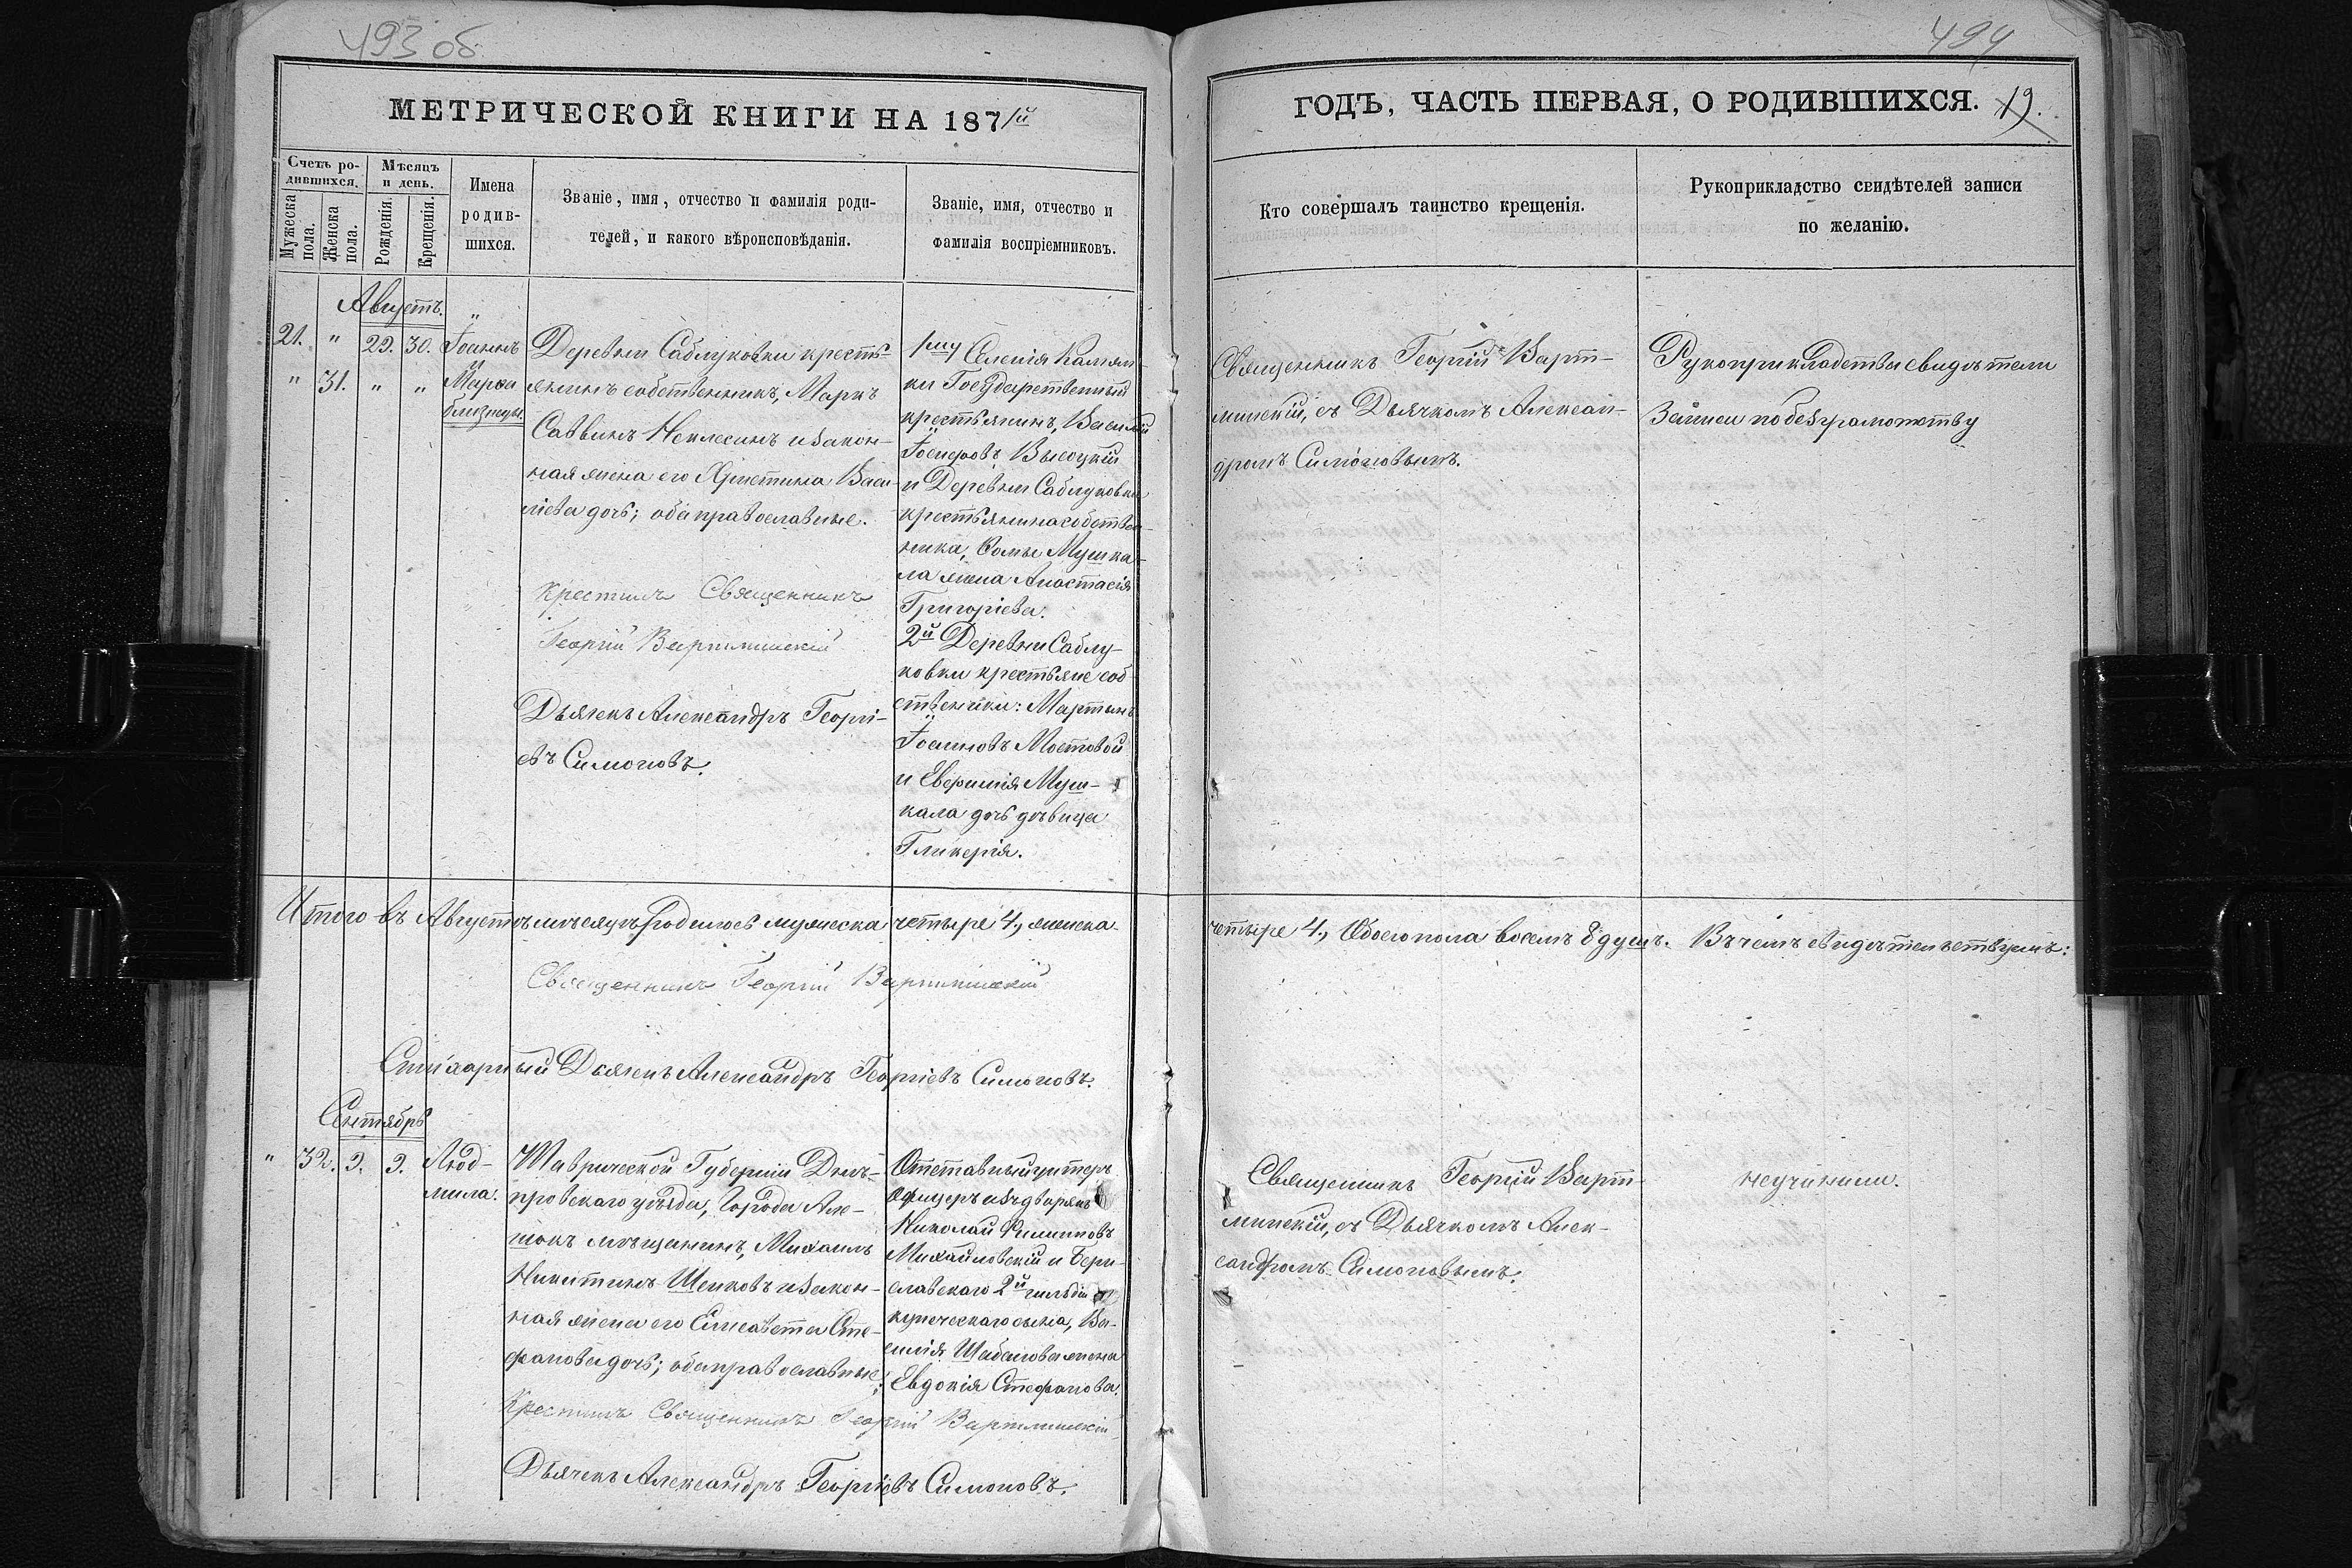 493 об
МЕТРИЧЕСКОЙ КНИГИ НА 1871й
Счетъ ро-
дившихся.
Мужеска
пола.
Женска
пола.
Мѣсяцъ
и день.
Рожденія.
Крещенія.
Имена
родив-
шихся.
Званіе, имя, отчество и фамилія роди-
телей, и какого вѣроисповѣданія.
Званіе, имя, отчество и
фамилія воспріемниковъ.
Августъ.
21. " 29. 30. Іоаннъ
" 31. " " и Марѳа
близнецы.
Деревни Саблуковки кресть-
янинъ собственникъ, Маркъ
Саввинъ Неклесинъ и закон-
ная жена его Христина Васи-
ліева дочь; оба православные.
Крестилъ Священникъ
Георгій Вартминскій
Дьячекъ Александръ Георгі-
евъ Симоновъ.
1му Селенія Камян-
ки Государственный
крестьянинъ, Василій
Іосифовъ Высоцкій
и Деревни Саблуковки
крестьянина собствен-
ника, Ѳомы Мушка-
ла жена Анастасія
Григоріева.
2й Деревни Саблу-
ковки крестьяне соб-
ственники: Мартынъ
Іоанновъ Мостовой
и Евфимія Муш-
кала дочь дѣвица
Гликерія.
Итого въ Августѣ мѣсяцѣ родилось мужеска четыре 4, женска
Священникъ Георгій Вартминскій
Стихарный Дьячекъ Александръ Георгіевъ Симоновъ.
Сентябрь
" 32. 9. 9. Люд-
мила.
Таврической Губерніи Днѣ-
провскаго уѣзда, Города Але-
шокъ мѣщанинъ, Михаилъ
Никитинъ Шенковъ и закон-
ная жена его Елисавета Сте-
фанова дочь; оба православные;
Отставный унтеръ
офицеръ изъ дворянъ
Николай Филиповъ
Михайловскій и Бери-
славскаго 2й гильдіи
купеческаго сына, Ва-
силія Шабанова жена
Евдокія Стефанова.
Крестилъ Священникъ Георгій Вартминскій
Дьячекъ Александръ Георгіевъ Симоновъ.
494
ГОДЪ, ЧАСТЬ ПЕРВАЯ, О РОДИВШИХСЯ. 19.
Кто совершалъ таинство крещенія.
Рукоприкладство свидѣтелей записи
по желанію.
Священникъ Георгій Варт-
минскій, съ Дьячкомъ Алексан-
дромъ Симоновымъ.
Рукоприкладства свидѣтели
записи по безграмотству
четыре 4, Обоего пола восемъ 8 душъ. Въ чемъ свидѣтельствуемъ:
Священникъ Георгій Варт-
минскій, съ Дьячкомъ Алек-
сандромъ Симоновымъ.
неучинили.